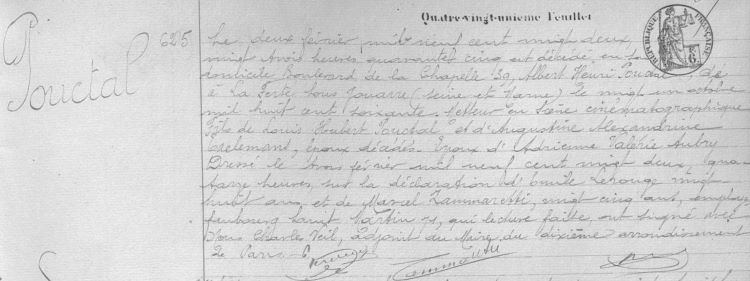 Quatre-vingt-unième Feuillet
RÉPUBLIQUE FRANÇAISE
625
Pouctal
Le deux février, mil neuf cent vingt deux,
vingt trois heures quarante cinq est décédé en son
domicile Boulevard de la Chapelle 39, Albert Henri Pouctal né
à La Ferté sous Jouarre (Seine et Marne) le vingt un octobre
mil huit cent soixante, Metteur en scène cinématographique
Fils de Louis Hubert Pouctal et d'Augustine Alexandrine
époux décédés. Époux d'Adrienne Valérie Aubry
Dressé le trois février mil neuf cent vingt deux, qua-
torze heures, sur la déclaration d'Emile Lerouge vingt
huit ans, et de Marcel vingt cinq ans, employés
faubourg Saint Martin 71, qui lecture faite, ont signé avec
Nous Charles Weil, adjoint au Maire du dixième arrondissement
de Paris